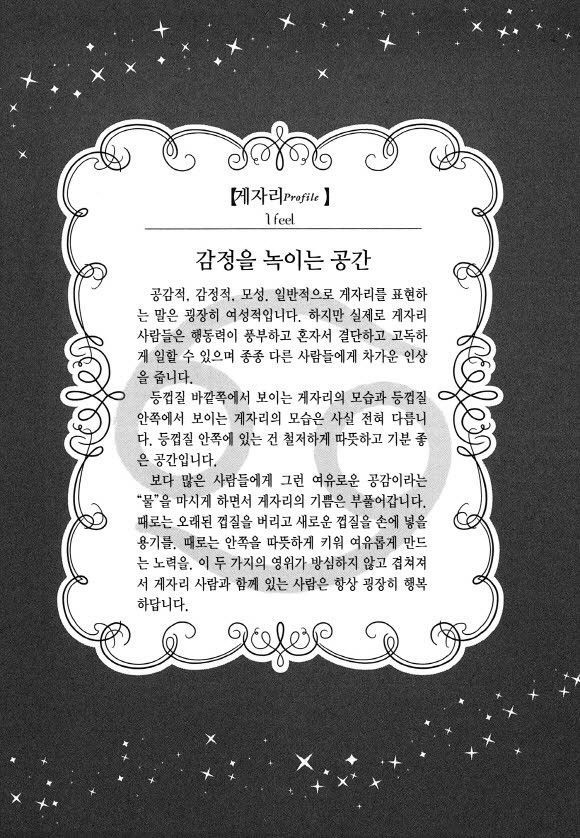 【게자리Profile】
I feel
감정을 녹이는 공간
공감적, 감정적, 모성. 일반적으로 게자리를 표현하
는 말은 굉장히 여성적입니다. 하지만 실제로 게자리
사람들은 행동력이 풍부하고 혼자서 결단하고 고독하
게 일할 수 있으며 종종 다른 사람들에게 차가운 인상
을 줍니다.
등껍질 바깥쪽에서 보이는 게자리의 모습과 등껍질
안쪽에서 보이는 게자리의 모습은 사실 전혀 다릅니
다. 등껍질 안쪽에 있는 건 철저하게 따뜻하고 기분 좋
은 공간입니다.
보다 많은 사람들에게 그런 여유로운 공감이라는
“물”을 마시게 하면서 게자리의 기쁨은 부풀어갑니다.
때로는 오래된 껍질을 버리고 새로운 껍질을 손에 넣을
용기를. 때로는 안쪽을 따뜻하게 키워 여유롭게 만드
는 노력을. 이 두 가지의 영위가 방심하지 않고 겹쳐져
서 게자리 사람과 함께 있는 사람은 항상 굉장히 행복
하답니다.